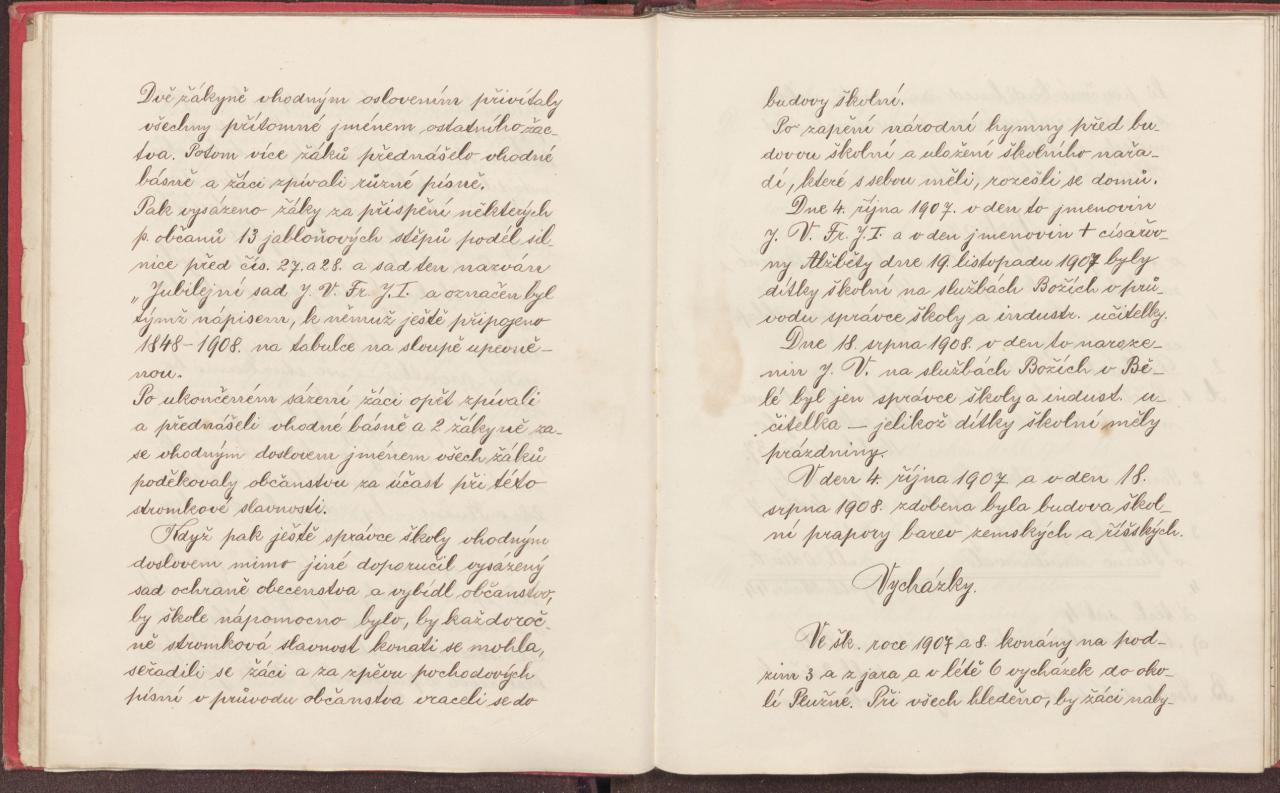 Dvě žákyně vhodným oslovením přivítaly
všechny přítomné jménem ostatního žac-
tva. Potom více žáků přednášelo vhodné
básně a žáci zpívali různé písně.
Pak vysázeno žáky za přispění některých
p. občanů 13 jabloňových stěpů podél sil-
nice před čís. 27. a 28. a sad ten nazván
„Jubilejní sad J. V. Fr. J. I. a označen byl
týmž nápisem, k nemuž ještě připojeno
1848-1908. na tabulce na sloupě upevně-
nou.
Po ukončeném sázení žáci opět zpívali
a přednášeli vhodné básně a 2 žákyně za-
se vhodným doslovem jménem všech žáků
poděkovaly občanstvu za účast při této
stromkové slavnosti.
Když pak ještě správce školy vhodným
doslovem mimo jiné doporučil vysázený
sad ochraně obecenstva a vybídl občanstvo,
by škole nápomocno bylo, by každoroč-
ně stromková slavnost konati se mohla,
seřadili se žáci a za zpěvu pochodových
písní v průvodu občanstva vraceli se do
budovy školní.
Po zapění národní hymny před bu-
dovou školní a uložení školního nařa-
dí, které s sebou měli, rozešli se domů.
Dne 4. října 1907. v den to jmenovin
J. V. Fr. J. I. a v den jmenovin + císařov-
ny Alžběty dne 19. listopadu 1907 byly
dítky školní na službách Božích v prů-
vodu správce školy a industr. učitelky.
Dne 18. srpna 1908. v den to naroze-
nin J. V. na službách Božích v Bě-
lé byl jen správce školy a indust. u-
čitelka — jelikož dítky školní měly
prázdniny.
V den 4. října 1907. a v den 18.
srpna 1908. zdobena byla budova škol-
ní prapory barev zemských a říšských.
Vycházky.
Ve šk. roce 1907 a 8. konány na pod-
zim 3 a z jara a v létě 6 vycházek do oko-
lí Plužné. Při všech hleděno, by žáci naby-